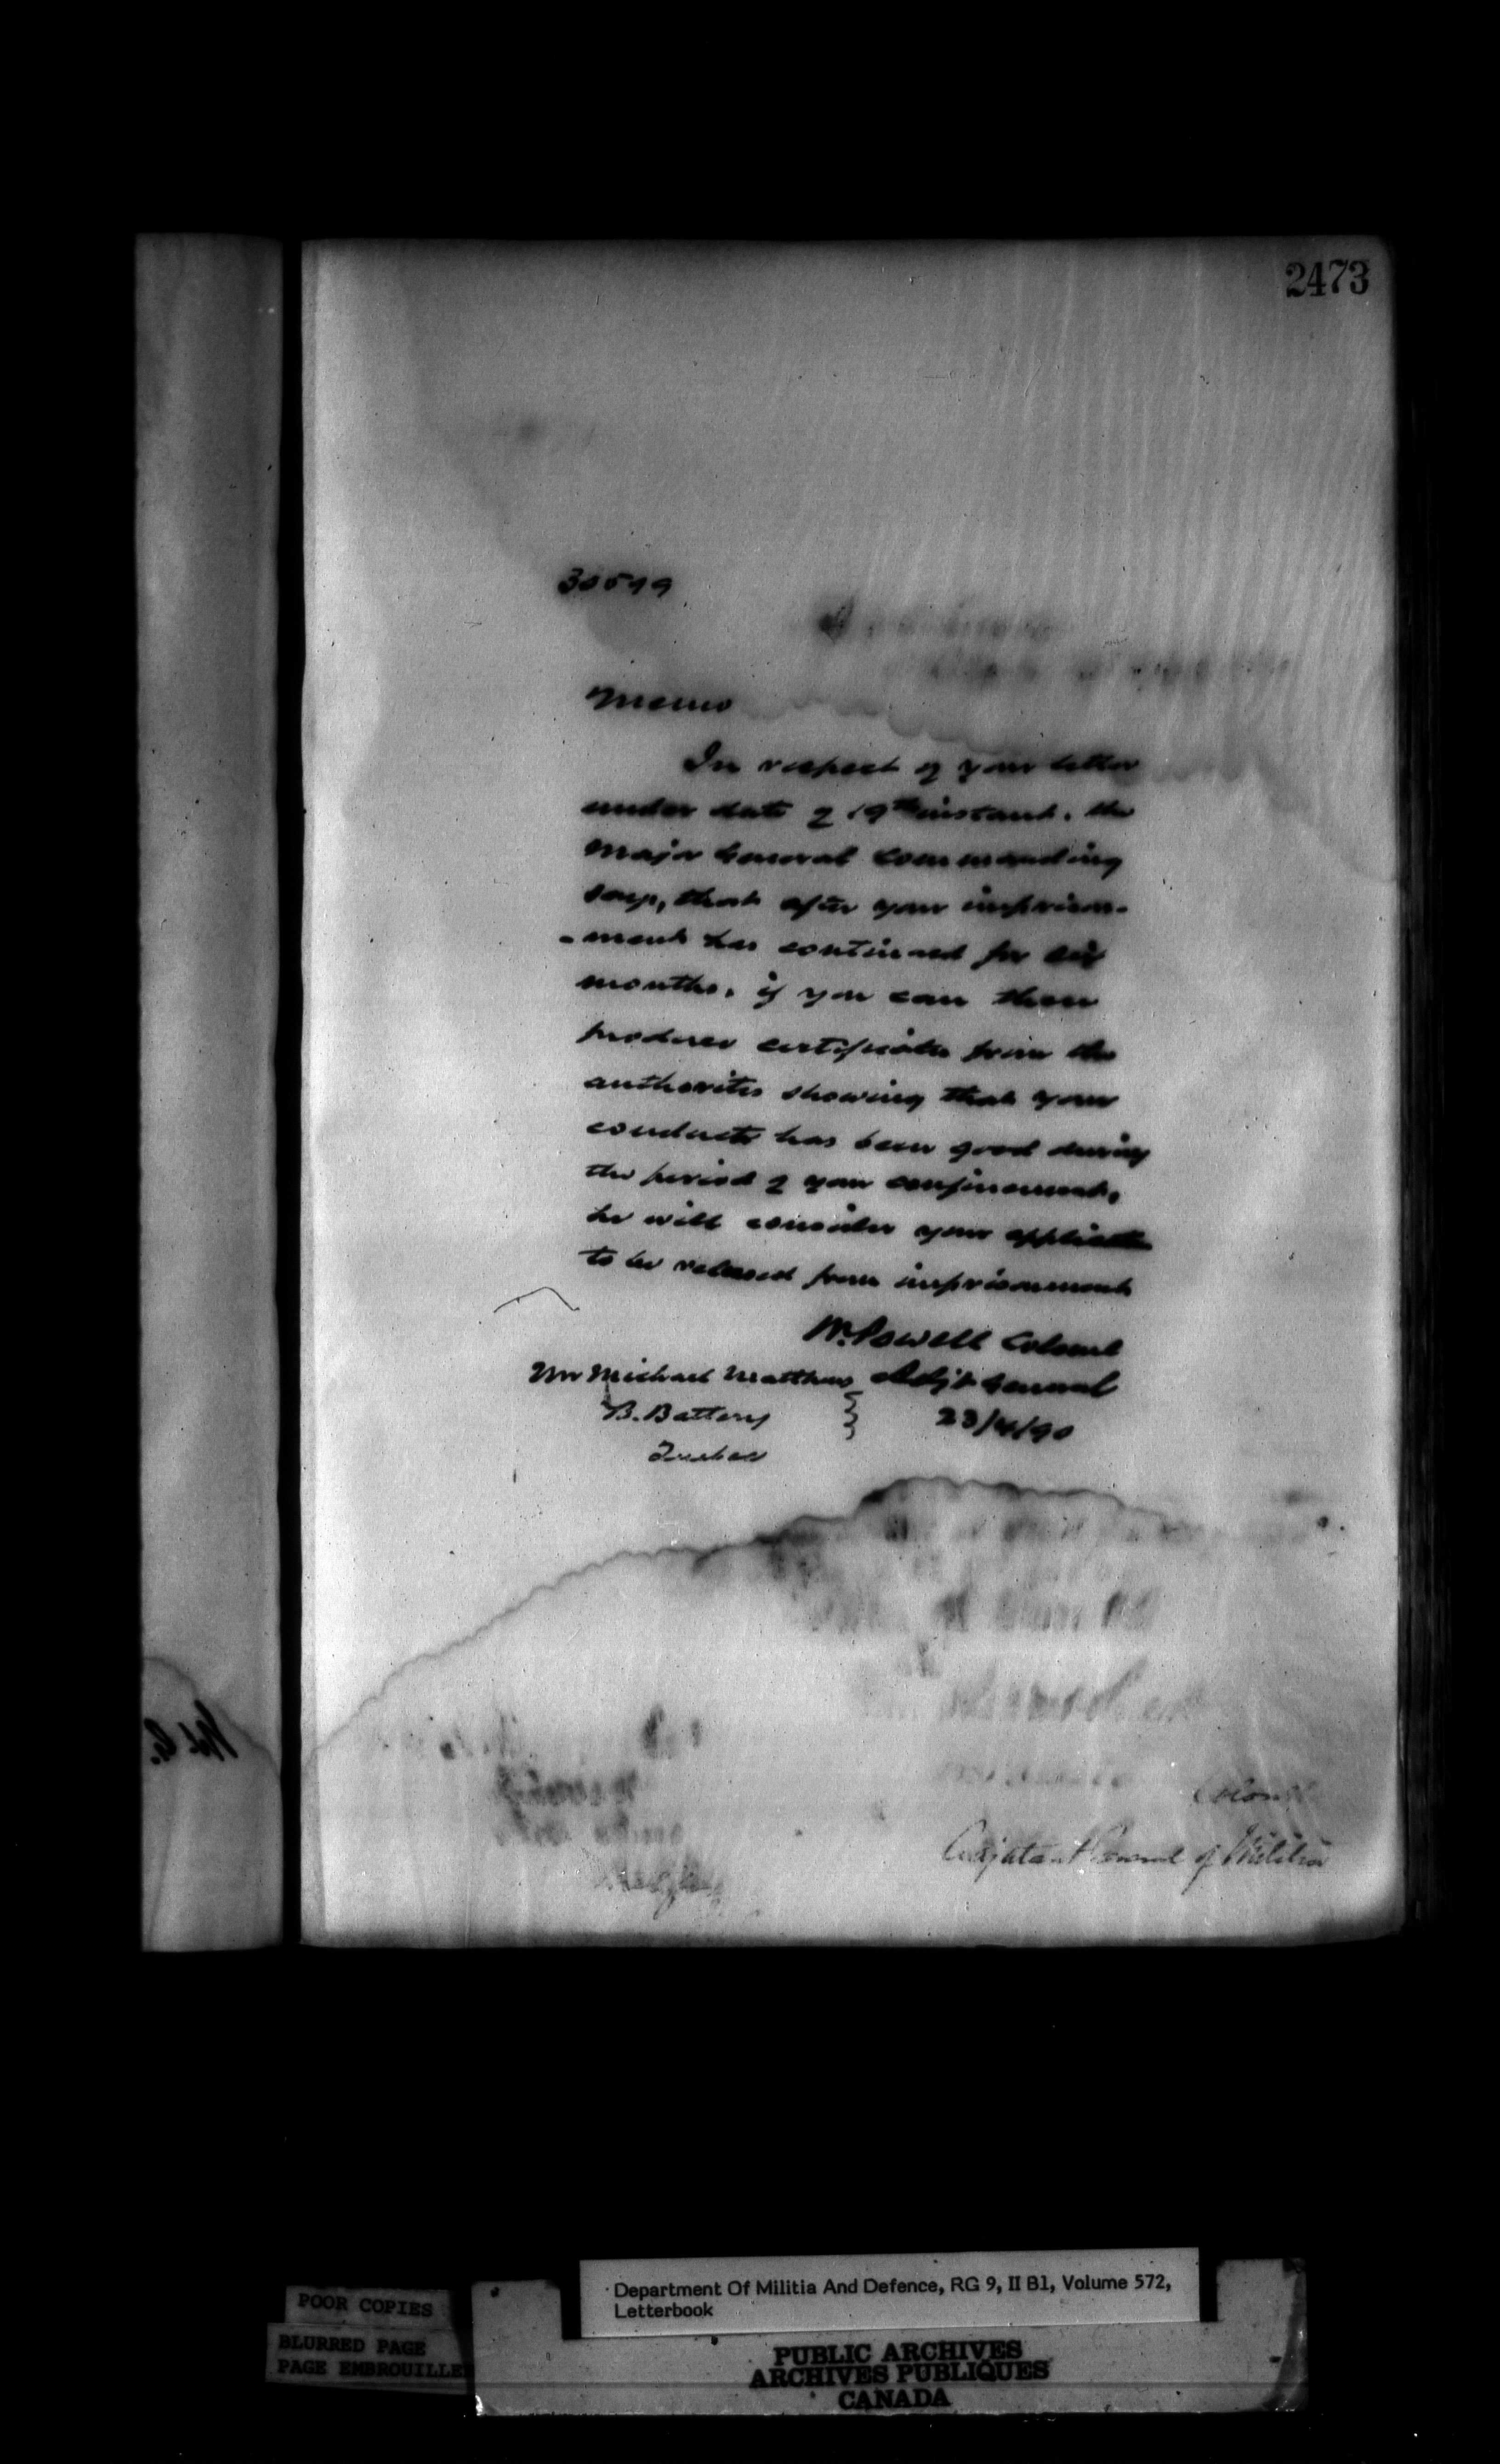 2473
30599
Memo
In respect of your letter
under date of 19th instant. the
Major General Commanding
says, that after your imprison-
-ment has continued for six
months, if you can then
produce certificates from the
authorities showing that your
conduct has been good during
the period of your confinement,
he will consider your application
to be released from imprisonment
W. Powell Colonel
Adjt General
Mr Michael Matthews
B. Battery
23/4/90
Quebec
Colonel
Adjutant General of Militia
Department Of Militia And Defence, RG 9, II B1, Volume 572,
Letterbook
POOR COPIES
BLURRED PAGE
PAGE EMBROUILLEE
PUBLIC ARCHIVES
ARCHIVES PUBLIQUES
CANADA